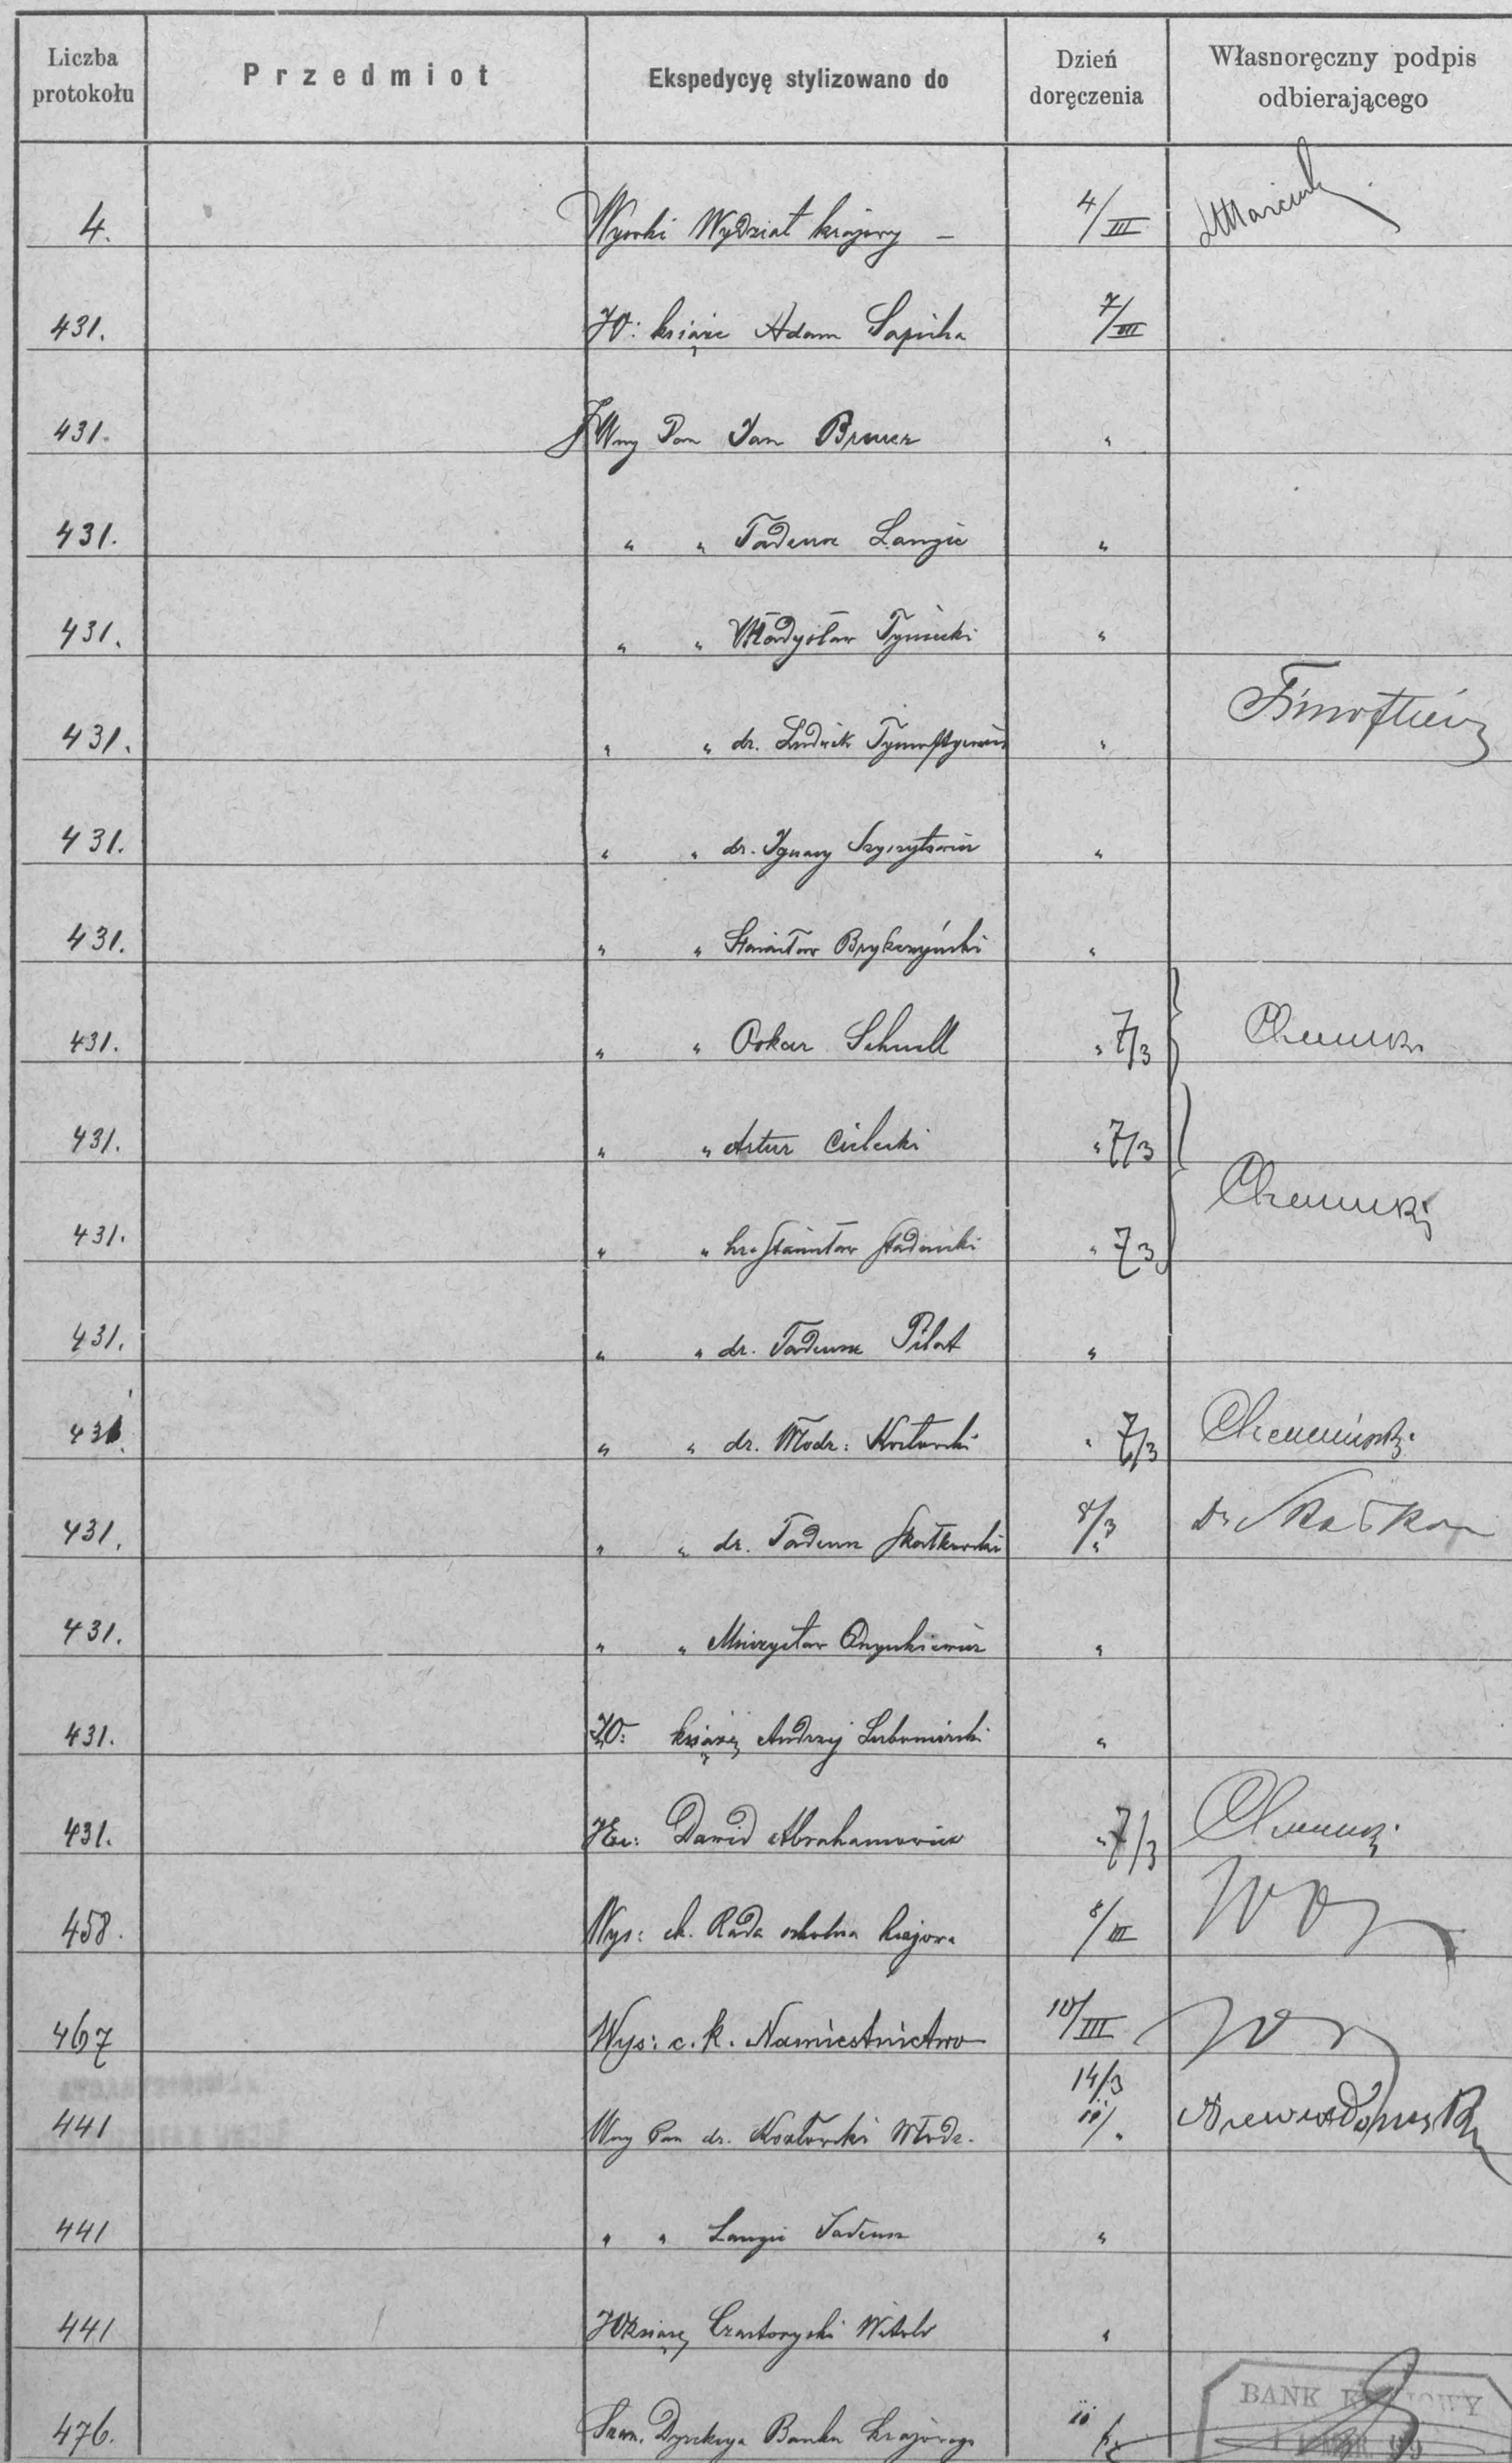 Liczba protokołu Przedmiot Ekspedycyę stylizowano do Dzień doręczenia Własnoręczny podpis odbierającego
4. Wysoki Wydział krajowy — 4/III
431. JO: książe Adam Sapieha 7/III
431. JWny Pan Jan Breuer "
431. " " Tadeusz Langie "
431. " " Władysław Tyniecki "
431. " " dr. Ludwik Tymoftyewicz "
431. " " dr. Ignacy Szyszyłowicz "
431. " " Stanisław Brykczyński "
431. " " Oskar Schnell " 7/3
431. " " Artur Cielecki " 7/3
431. " " hr. Stanisław Stadnicki " 7/3
431. " " dr. Tadeusz Pilat "
431. " " dr. Włodz: Kozłowski " 7/3
431. " " dr. Tadeusz Skałkowski 8/3 "
431. " " Mieczysław Onyszkiewicz "
431. JO: książę Andrzej Lubomirski "
431. JEx: Dawid Abrahamowicz " 7/3
458. Wys: ck. Rada szkolna krajowa 8/III
467 Wys: c. k. Namiestnictwo 10/III
14/3
441 Wny Pan dr. Kozłowski Włodz. "
441 " " Langie Tadeusz "
441 JO książę Czartoryski Witold "
476. Szan. Dyrekcya Banku krajowego
BANK KRAJOWY